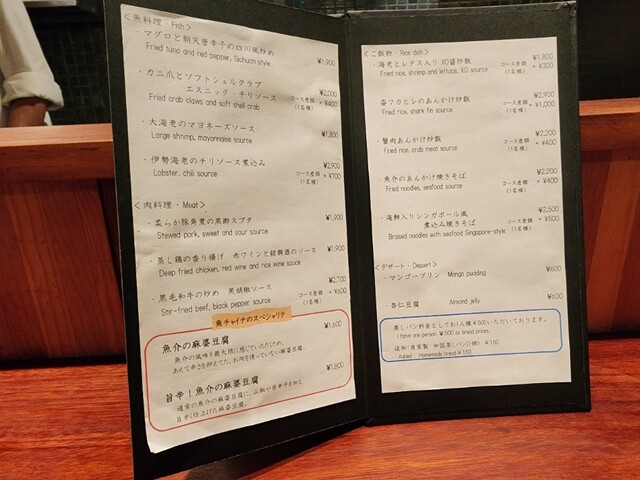 ＜魚料理・Fish＞
・マグロと朝天唐辛子の四川風炒め
Fried tuna and red pepper, Sichuan style ¥1,900
・カニ爪とソフトシェルクラブ
エスニック・チリソース ¥2,000
Fried crab claws and soft shell crab コース差額 + ¥400
(1名様)
・大海老のマヨネーズソース
Large shrimp, mayonnaise source ¥1,800
・伊勢海老のチリソース煮込み ¥2,900
Lobster, chili source コース差額 + ¥700
(1名様)
＜肉料理・Meat＞
・柔らか豚角煮の黒酢スブタ ¥1,900
Stewed pork, sweet and sour source
・蒸し鶏の香り揚げ 赤ワインと紹興酒のソース ¥1,900
Deep fried chicken, red wine and rice wine source
・黒毛和牛の炒め 黒胡椒ソース ¥2,700
Stir-fried beef, black pepper source コース差額 + ¥600
(1名様)
魚チャイナのスペシャリテ
魚介の麻婆豆腐 ¥1,600
魚介の風味を最大限に感じていただくため、
あえて辛さを抑えてた、お肉を使っていない麻婆豆腐。
旨辛！魚介の麻婆豆腐 ¥1,800
通常の魚介の麻婆豆腐に、山椒や唐辛子を加え
旨辛く仕上げた麻婆豆腐。
＜ご飯物・Rice dish＞
・海老とレタス入り XO醤炒飯 ¥1,800
Fried rice, shrimp and lettuce, XO source コース差額 + ¥300
(1名様)
・フカヒレのあんかけ炒飯 ¥2,900
Fried rice, shark fin source コース差額 + ¥1,000
(1名様)
・蟹肉あんかけ炒飯 ¥2,200
Fried rice, crab meat source コース差額 + ¥400
(1名様)
・魚介のあんかけ焼きそば ¥2,200
Fried noodles, seafood source コース差額 + ¥400
(1名様)
・海鮮入りシンガポール風
煮込み焼きそば ¥2,500
Braised noodles with seafood Singapore-style コース差額 + ¥500
(1名様)
＜デザート・Dessert＞
・マンゴープリン Mango pudding ¥600
・杏仁豆腐 Almond jelly ¥600
蒸しパン料金としてお1人様¥500いただいております。
1 have one person ¥500 as bread prices.
追加：自家製 中国蒸しパン(1個) ¥150
Added : Homemade bread ¥150